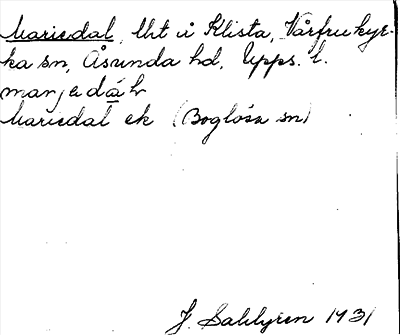 Mariedal, lht u Klista, Vårfrukyr-
ka sn, Åsunda hd, Upps. l.
marjedá̱l
Mariedal ek (Boglösa sn)
J. Sahlgren 1931